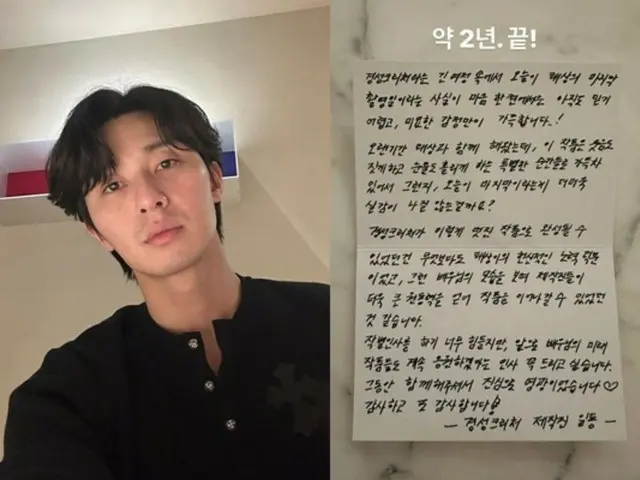 약 2년. 끝!
경성크리처라는 긴 여정 속에서 오늘이 태상의 마지막
촬영일이라는 사실이 마음 한편에서는 아직도 믿기
어렵고, 미묘한 감정만이 가득합니다..!
오랜기간 태상과 함께 해왔는데, 이 작품은 웃음도
짓게하고 눈물도 흘리게 하는 특별한 순간들로 가득차
있어서 그런지, 오늘이 마지막이라는게 더더욱
실감이 나질 않는걸까요?
경성크리처가 이렇게 멋진 작품으로 완성될 수
있었던건 무엇보다도 태상이의 헌신적인 노력 덕분
이었고, 그런 배우님의 모습을 보며 제작진들이
더욱 큰 원동력을 얻어 작품을 이어나갈 수 있었던
것 같습니다.
작별인사를 하기 너무 힘들지만, 앞으로 배우님의 미래
작품들도 계속 응원하겠다는 인사 꼭 드리고 싶습니다.
그동안 함께해주셔서 진심으로 영광이었습니다♡
감사하고 또 감사합니다!
— 경성크리처 제작진 일동 —